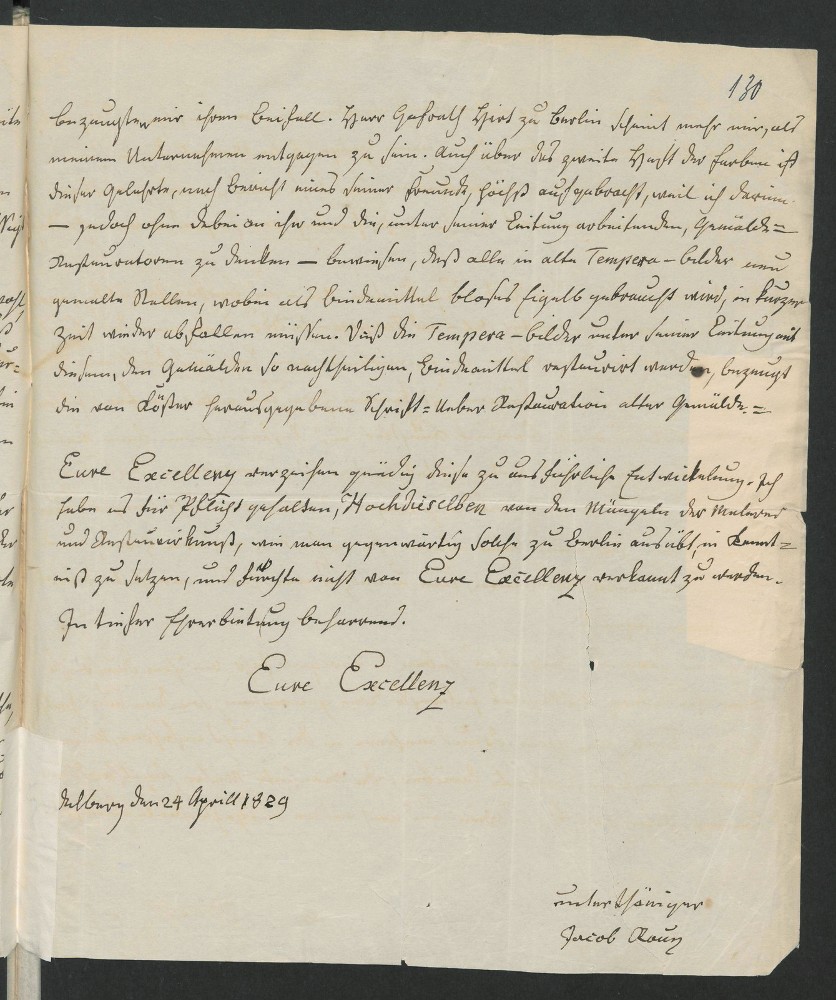 130
bezeugten mir ihren Beifall. Herr Hofrath Hirt zu Berlin scheint mehr mir, als
meinem Unternehmen entgegen zu sein. Auch über das zweite Heft der Farben ist
dieser Gelehrte, nach Bericht eines seiner Freunde, höchst aufgebracht, weil ich darinn
— jedoch ohne dabei an ihn und die, unter seiner Leitung arbeitenden, Gemälde=
Restauratoren zu denken — bewiesen, daß alle in alte Tempera-bilder neu
gemalte Stellen, wobei als Bindemittel bloses Eigelb gebraucht wird, in kurzer
Zeit wieder abfallen müssen. Daß die Tempera-bilder unter seiner Leitung mit
diesem, den Gemälden so nachtheiligen, Bindemittel restaurirt werden, bezeugt
die von Köster herausgegebene Schrift= Ueber Restauration alter Gemälde.=
Eure Excellenz verzeihen gnädig diese zu ausführliche Entwickelung. Ich
habe es für Pflicht gehalten, Hochdieselben von den Mängeln der Malerei
und Restaurirkunst, wie man gegenwärtig solche zu Berlin ausübt, in Kennt=
niß zu setzen, und fürchte nicht von Eure Excellenz verkannt zu werden.
In tiefster Ehrerbietung beharrend.
Eure Excellenz
den 24 Aprill 1829
unterthäniger
Jacob Roux